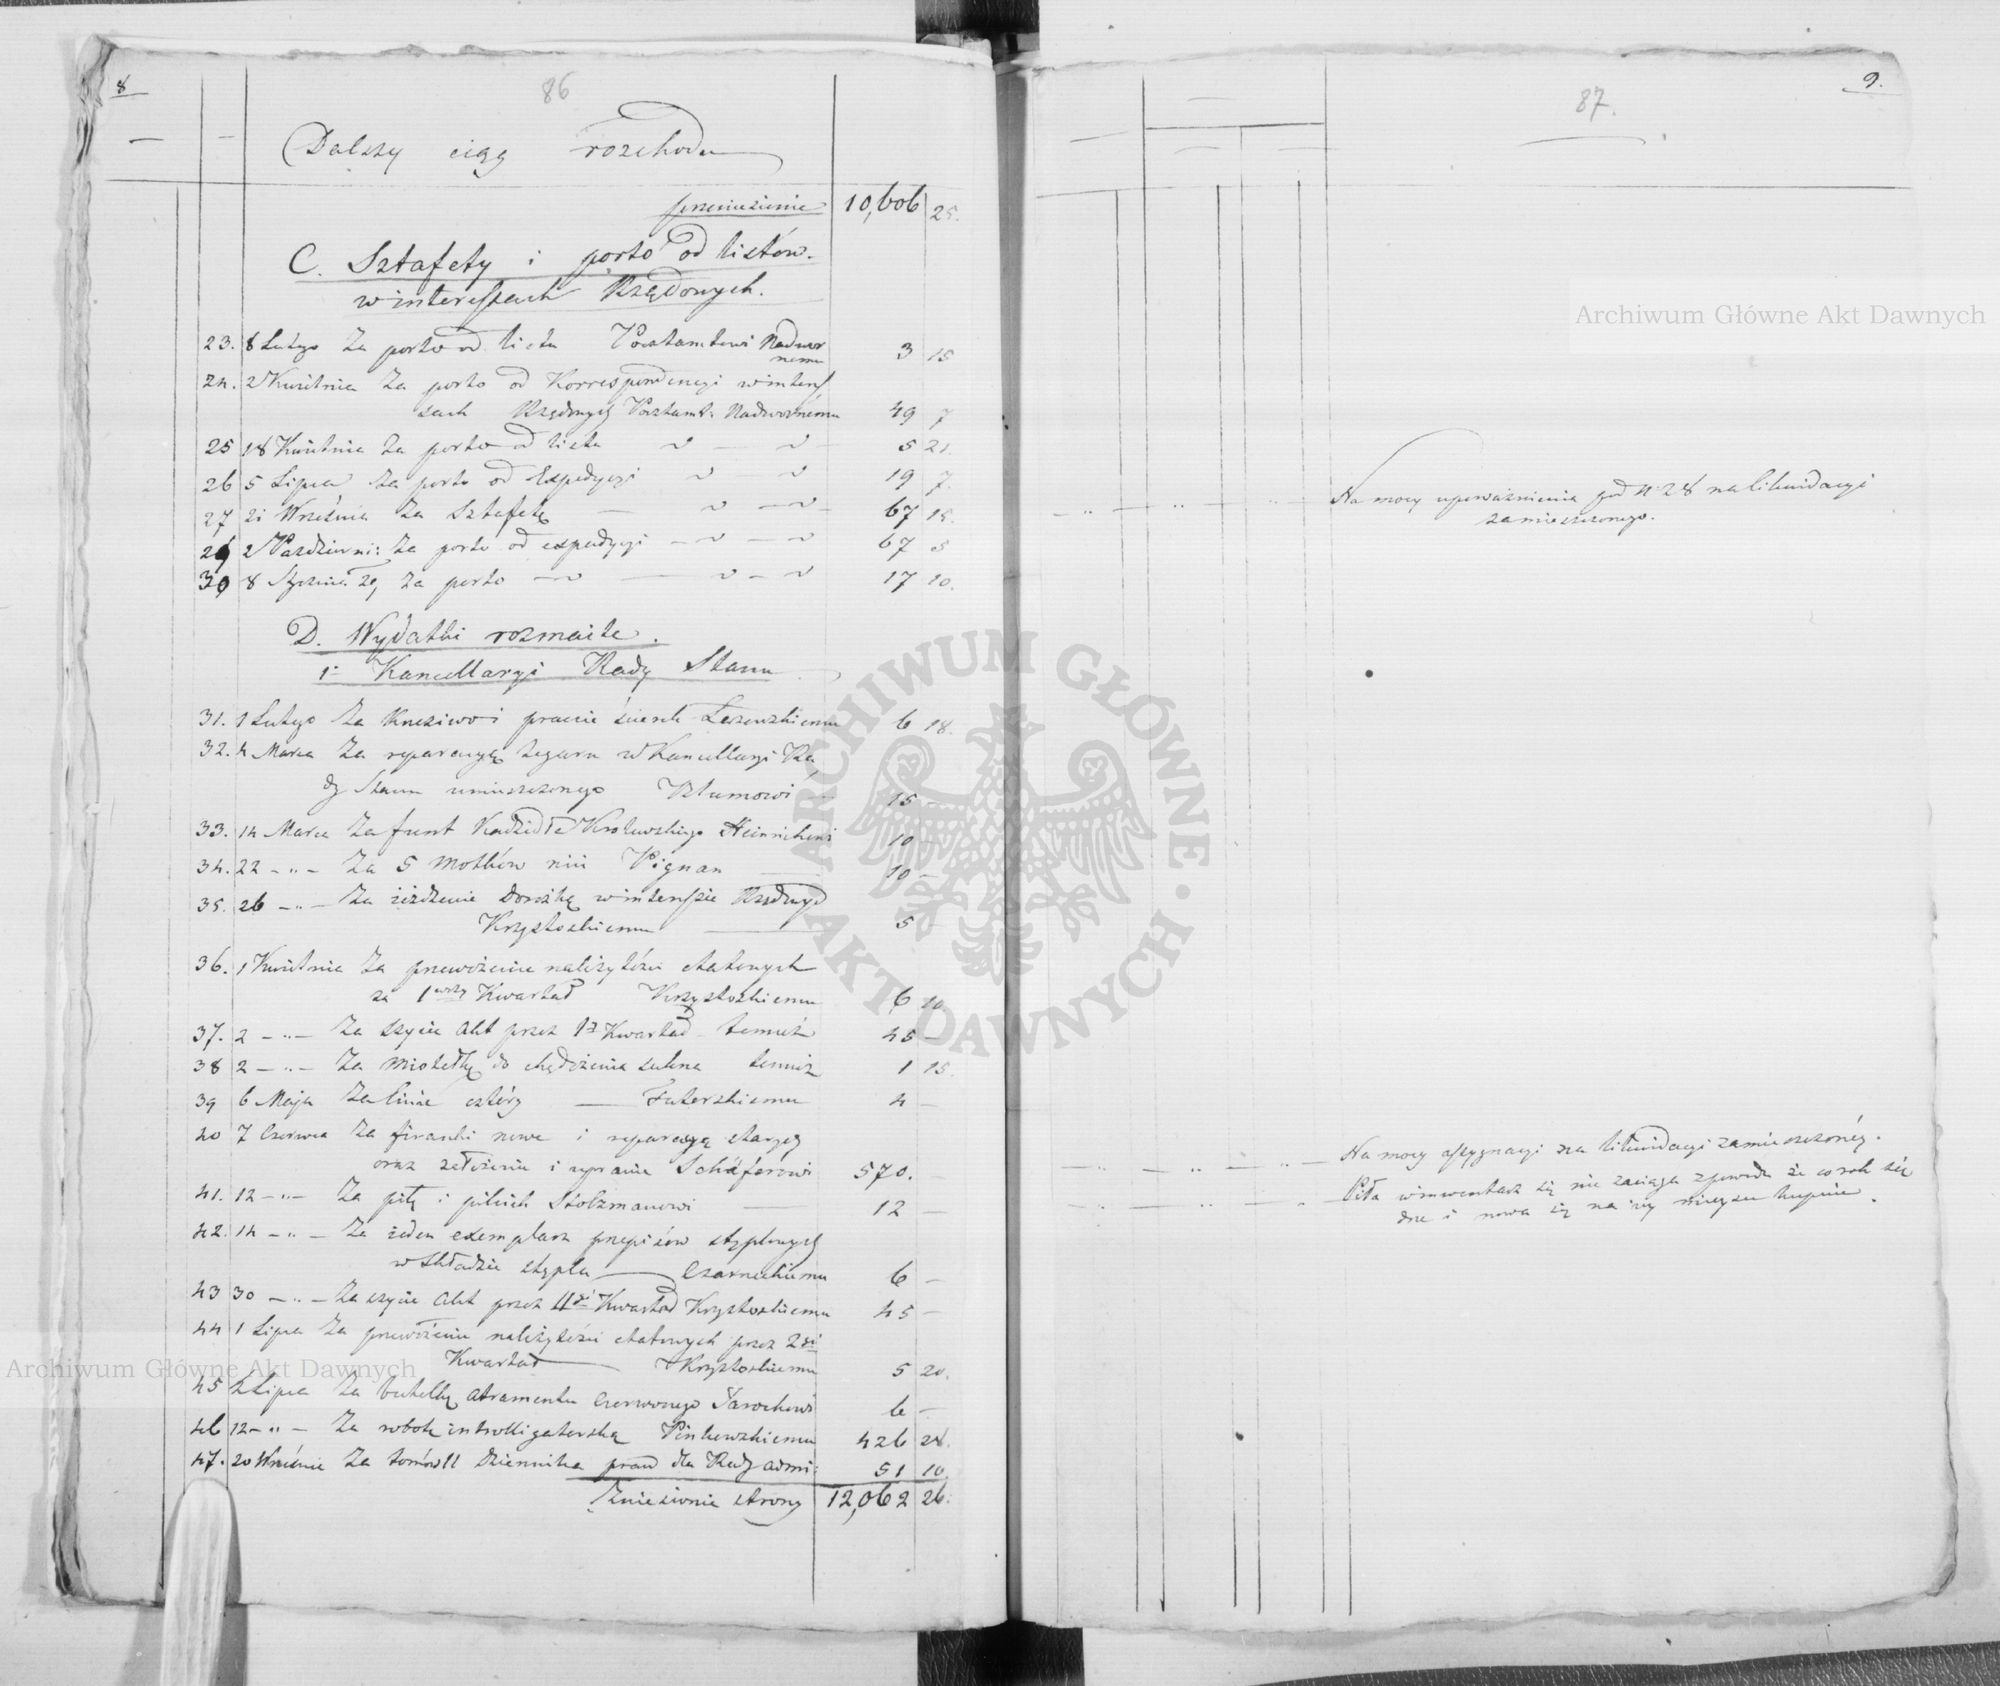 8
86
Dalszy ciąg rozchodu
przeniesienie 10,606 25.
C. Sztafety i porto od listów
w interessach Rządowych.
23. 8 Lutego Za porto od listu Pocztamtowi Nadwor
nemu 3 15
24. 2 Kwietnia Za porto od Korrespondencyi w interes
sach Rządowych Pocztamt: Nadwornému 49 7
25 18 Kwietnia Za porto od listu 5 21.
26 5 Lipca Za porto od Expedycyi 19 7.
27 21 Września Za Sztafetę 67 15.
29 2 Październi: Za porto od expedycyi 67 5
30 8 Stycznia za porto 17 10.
D. Wydatki rozmaite.
1. Kancellaryi Rady Stanu
31. 1 Lutego Za i pranie 6 18.
32. 4 Marca Za reparacyą zegaru w Kancellaryi Ra
dy Stanu umieszczonego 15 —
33. 14 Marca Za funt Kadzidła Królewskiego Heinrichowi 10 —
34. 22 — „ — Za 5 motków nici Pignan 10 —
35. 26 — „ — Za jeżdżenie dorożką w interessie Rządowym
Krzystoskiemu 5 —
36. 1 Kwietnia Za przewożenie należytości etatowych
za 1wszy Kwartał Krzystoskiemu 6 10.
37. 2 — „ — Za szycie Akt przez 1y Kwartał temuż 45 —
38 2 — „ — Za miotełkę do chędożenia sukna temuż 1 15.
39 6 Maja Za linie cztéry Futerskiemu 4 —
40 7 Czerwca Za firanki nowe i reparacyą starych
oraz założenie i upranie Schäferowi 570. —
41. 12 — „ — Za piłę i pilnik Stolzmanowi 12 —
42. 14 — „ — Za jeden exemplarz przepisów stęplowych
w Składzie stępla Czarneckiemu 6 —
43 30 — „ — Za szycie Akt przez IIgi Kwartał Krzystoskiemu 45 —
44 1 Lipca Za przewożenie należytości etatowych przez 2gi
Kwartał Krzystoskiemu 5 20.
45 2 Lipca Za butelkę atramentu czerwonego 6 —
46 12 — „ — Za robotę introlligatorską Pinkowskiemu 426 28.
47. 20 Września Za tomów 11 Dziennika praw dla Rady admi: 51 10.
Zniesienie strony 12,062 26.
9.
87.
Na mocy upoważnienia pod N. 28 na likwidacyi
zamieszczonego.
Na mocy assygnacyi na likwidacyi zamieszczonéy.
Piła w inwentarz się nie zaciąga z powodu że co rok się
drze i nowa się na iéy mieysce kupuie.
Archiwum Główne Akt Dawnych
Archiwum Główne Akt Dawnych
ARCHIWUM GŁÓWNE • AKT DAWNYCH •